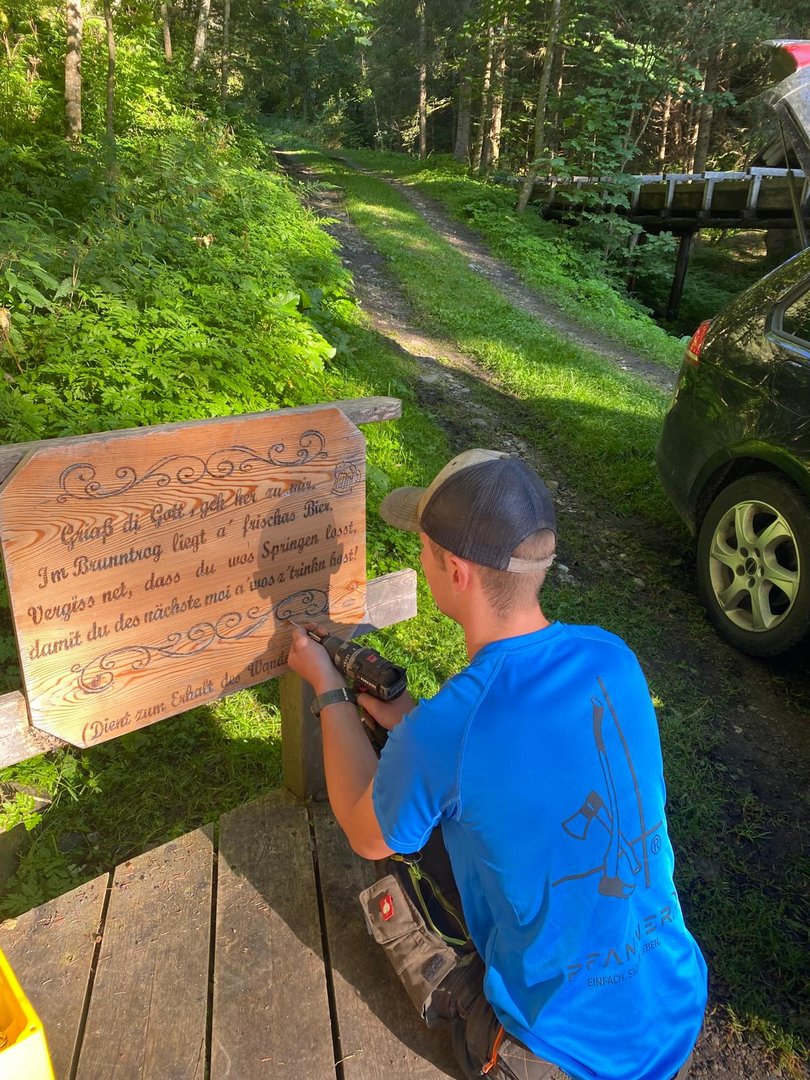 Griaß di Gott, geh her zu mir.
Im Brunntrog liegt a' frischas Bier,
Vergiss net, dass du wos Springen losst,
damit du des nächste moi a' wos z' trinkn host!
(Dient zum Erhalt des
PFANNER
EINFACH.
®